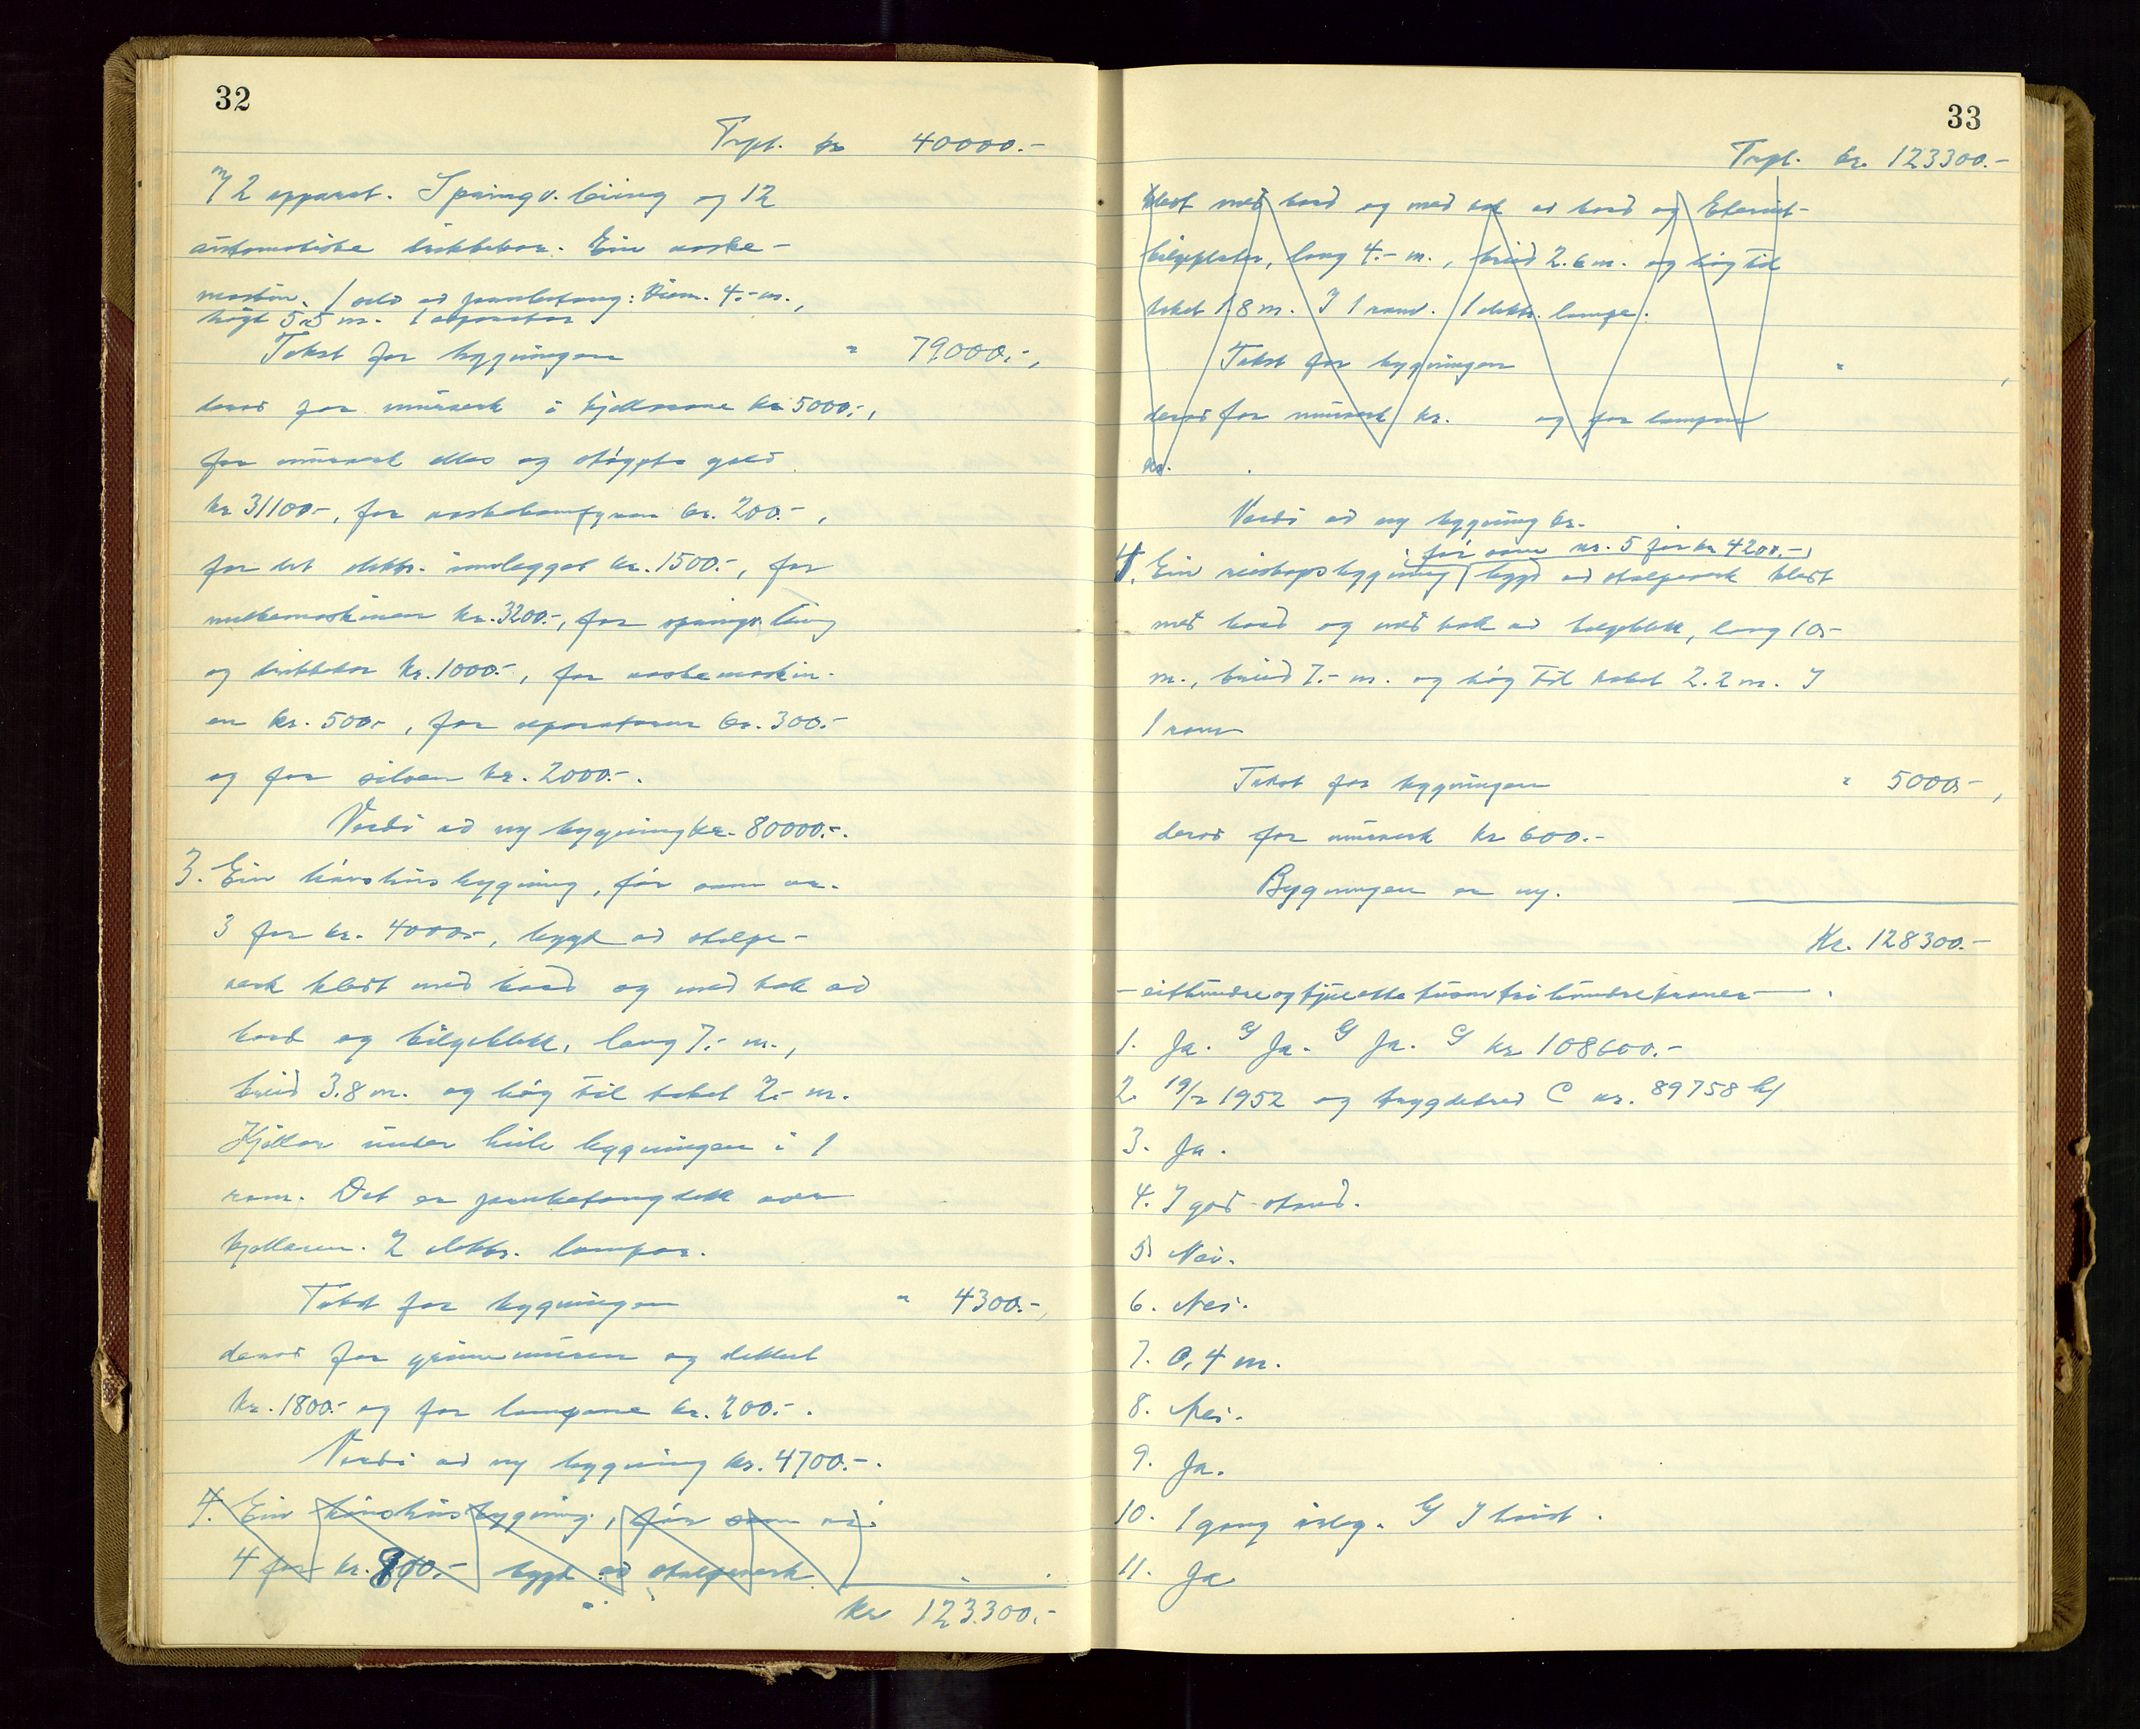 32
Trpt. kr 40000.-
m/ 2 apparat. Springv. leiing og 12
automatiske drikkekar. Ein vaske-
maskin. 1 silo av jarnbetong: Diam. 4.- m.,
høgt 5.5 m. 1 separator
Takst for bygningen " 79000.-,
derav for murverk i kjellarane kr 5000.-,
for murverk elles og støypte golv
kr 31100.-, for vaskekomfyren kr. 200.-,
for det elektr. innlegget kr. 1500.-, for
melkemaskinen kr. 3200.-, for springv. leiing
og drikkekar kr. 1000.-, for vaskemaskin-
en kr. 500.-, for separatoren kr. 300.-
og for siloen kr. 2000.-.
Verdi av ny bygning kr. 80000.-.
3. Ein hønshusbygning, før som nr.
3 for kr. 4000.-, bygt av stolpe-
verk kledt med bord og med tak av
bord og bølgeblekk, lang 7.- m.,
breid 3.8 m. og høg til taket 2.- m.
Kjellar under heile bygningen i 1
rom. Det er jarnbetongdekk over
kjellaren. 2 elektr. lampor.
Takst for bygningen " 4300.-,
derav for grunnmuren og dekket
kr. 1800.- og for lampone kr. 200.-.
Verdi av ny bygning kr. 4700.-.
4. Ein hønshusbygning, før som nr.
4 for kr. 800.- bygt av stolpeverk
kr 123.300.-
33
Trpt. kr. 123300.-
kledt med bord og med tak av bord og Eternit-
bølgeplater, lang 4.- m., breid 2.6 m. og høg til
taket 1.8 m. I 1 rom. 1 elektr. lampe.
Takst for bygningen " ,
derav for murverk kr. og for lampen
kr. .
Verdi av ny bygning kr.
før som nr. 5 for kr 4200.-,
4. Ein reiskapsbygning, bygd av stolpeverk kledt
med bord og med tak av bølgeblekk, lang 10.-
m., breid 7.- m. og høg til taket 2.2 m. I
1 rom
Takst for bygningen " 5000.-,
derav for murverk kr 600.-
Bygningen er ny.
Kr. 128300.-
- eithundreogtjueåttetusentrihundrekroner -
1. Ja. G Ja. G Ja. G kr 108600.-
2. 19/2 1952 og trygdebrev C nr. 89758
3. Ja.
4. I god stand.
5. Nei.
6. Nei.
7. 0,4 m.
8. Nei.
9. Ja.
10. 1 gong årleg. G I hørt.
11. Ja